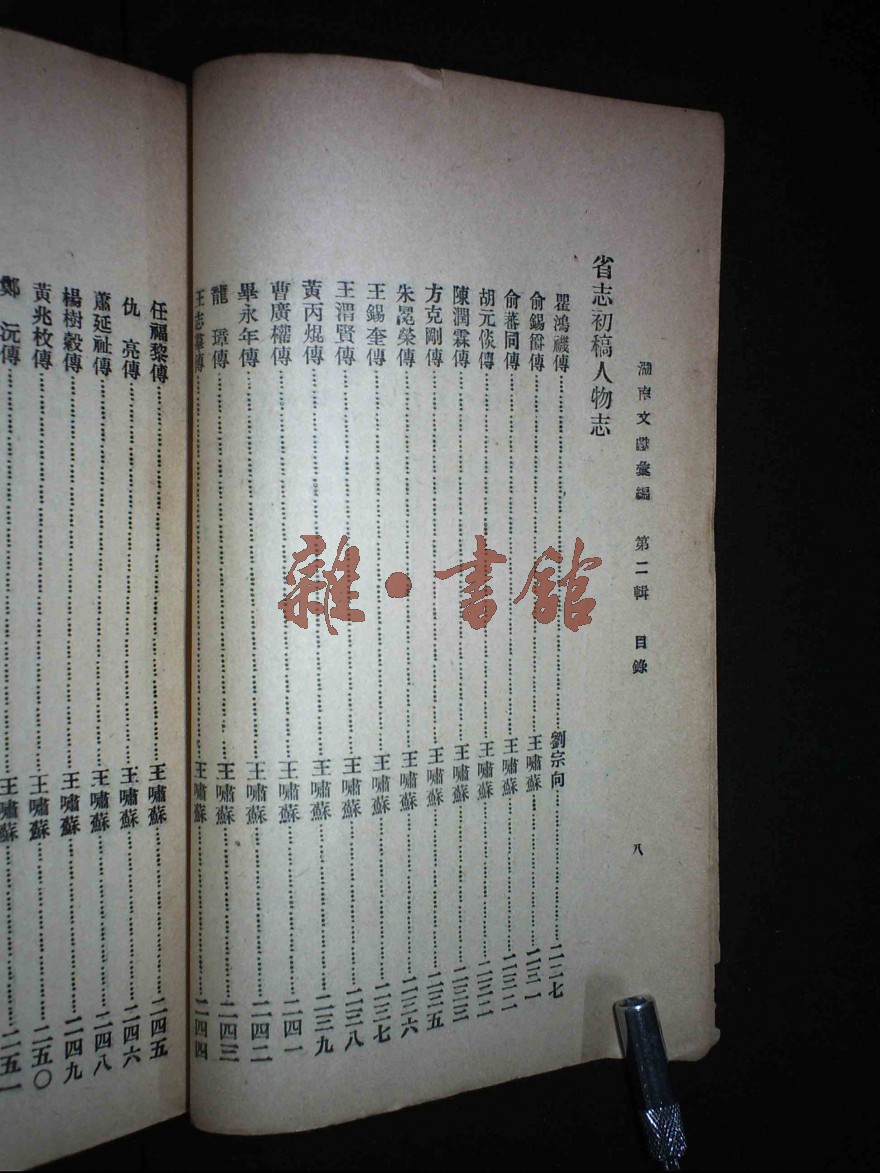 湖南文獻彙編 第二輯 目錄 八
省志初稿人物志
瞿鴻禨傳 劉宗向 二二七
俞錫爵傳 王嘯蘇 二三一
俞蕃同傳 王嘯蘇 二三二
胡元倓傳 王嘯蘇 二三二
陳潤霖傳 王嘯蘇 二三三
方克剛傳 王嘯蘇 二三五
朱昆榮傳 王嘯蘇 二三六
王錫奎傳 王嘯蘇 二三七
王渭賢傳 王嘯蘇 二三八
黃丙焜傳 王嘯蘇 二三九
曹廣權傳 王嘯蘇 二四一
畢永年傳 王嘯蘇 二四二
龍璋傳 王嘯蘇 二四三
王志羣傳 王嘯蘇 二四四
任福黎傳 王嘯蘇 二四五
仇亮傳 王嘯蘇 二四六
蕭延祉傳 王嘯蘇 二四八
楊樹穀傳 王嘯蘇 二四九
黃兆枚傳 王嘯蘇 二五〇
鄭沅傳 王嘯蘇 二五一
雜·書館